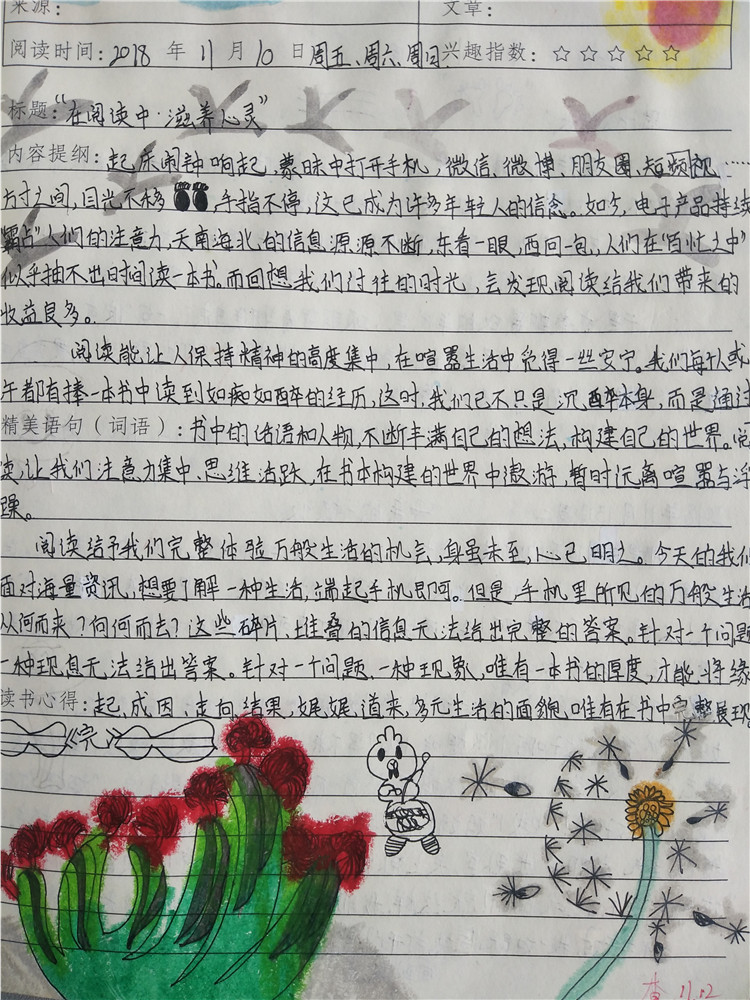 来源: 文章:
阅读时间: 2018 年 11 月 10 日 周五、周六、周日 兴趣指数: ☆ ☆ ☆ ☆ ☆
标题:“在阅读中·滋养心灵”
内容提纲: 起床闹钟响起,蒙昧中打开手机,微信、微博、朋友圈、短频视……
方寸之间,目光不移,手指不停,这已成为许多年轻人的信念。如今,电子产品持续
“霸占”人们的注意力,天南海北的信息源源不断,东看一眼,西回一句,人们在“百忙之中”
似乎抽不出时间读一本书。而回想我们过往的时光,会发现阅读给我们带来的
收益良多。
阅读能让人保持精神的高度集中,在喧嚣生活中觅得一丝安宁。我们每个人或
许都有捧一本书中读到如痴如醉的经历,这时,我们已不只是沉醉本身,而是通过
精美语句(词语): 书中的话语和人物,不断丰满自己的想法,构建自己的世界。阅
读,让我们注意力集中、思维活跃,在书本构建的世界中遨游,暂时远离喧嚣与浮
躁。
阅读给予我们完整体验万般生活的机会,身虽未至,心已明之。今天的我们
面对海量资讯,想要了解一种生活,端起手机即可。但是,手机里所见的万般生活
从何而来?向何而去?这些碎片、堆叠的信息无法给出完整的答案。针对一个问题
一种现息无法给出答案。针对一个问题、一种现象,唯有一本书的厚度,才能将缘
读书心得: 起、成因、走向、结果,娓娓道来,多元生活的面貌,唯有在书中完整展现
《完》
查 11.12